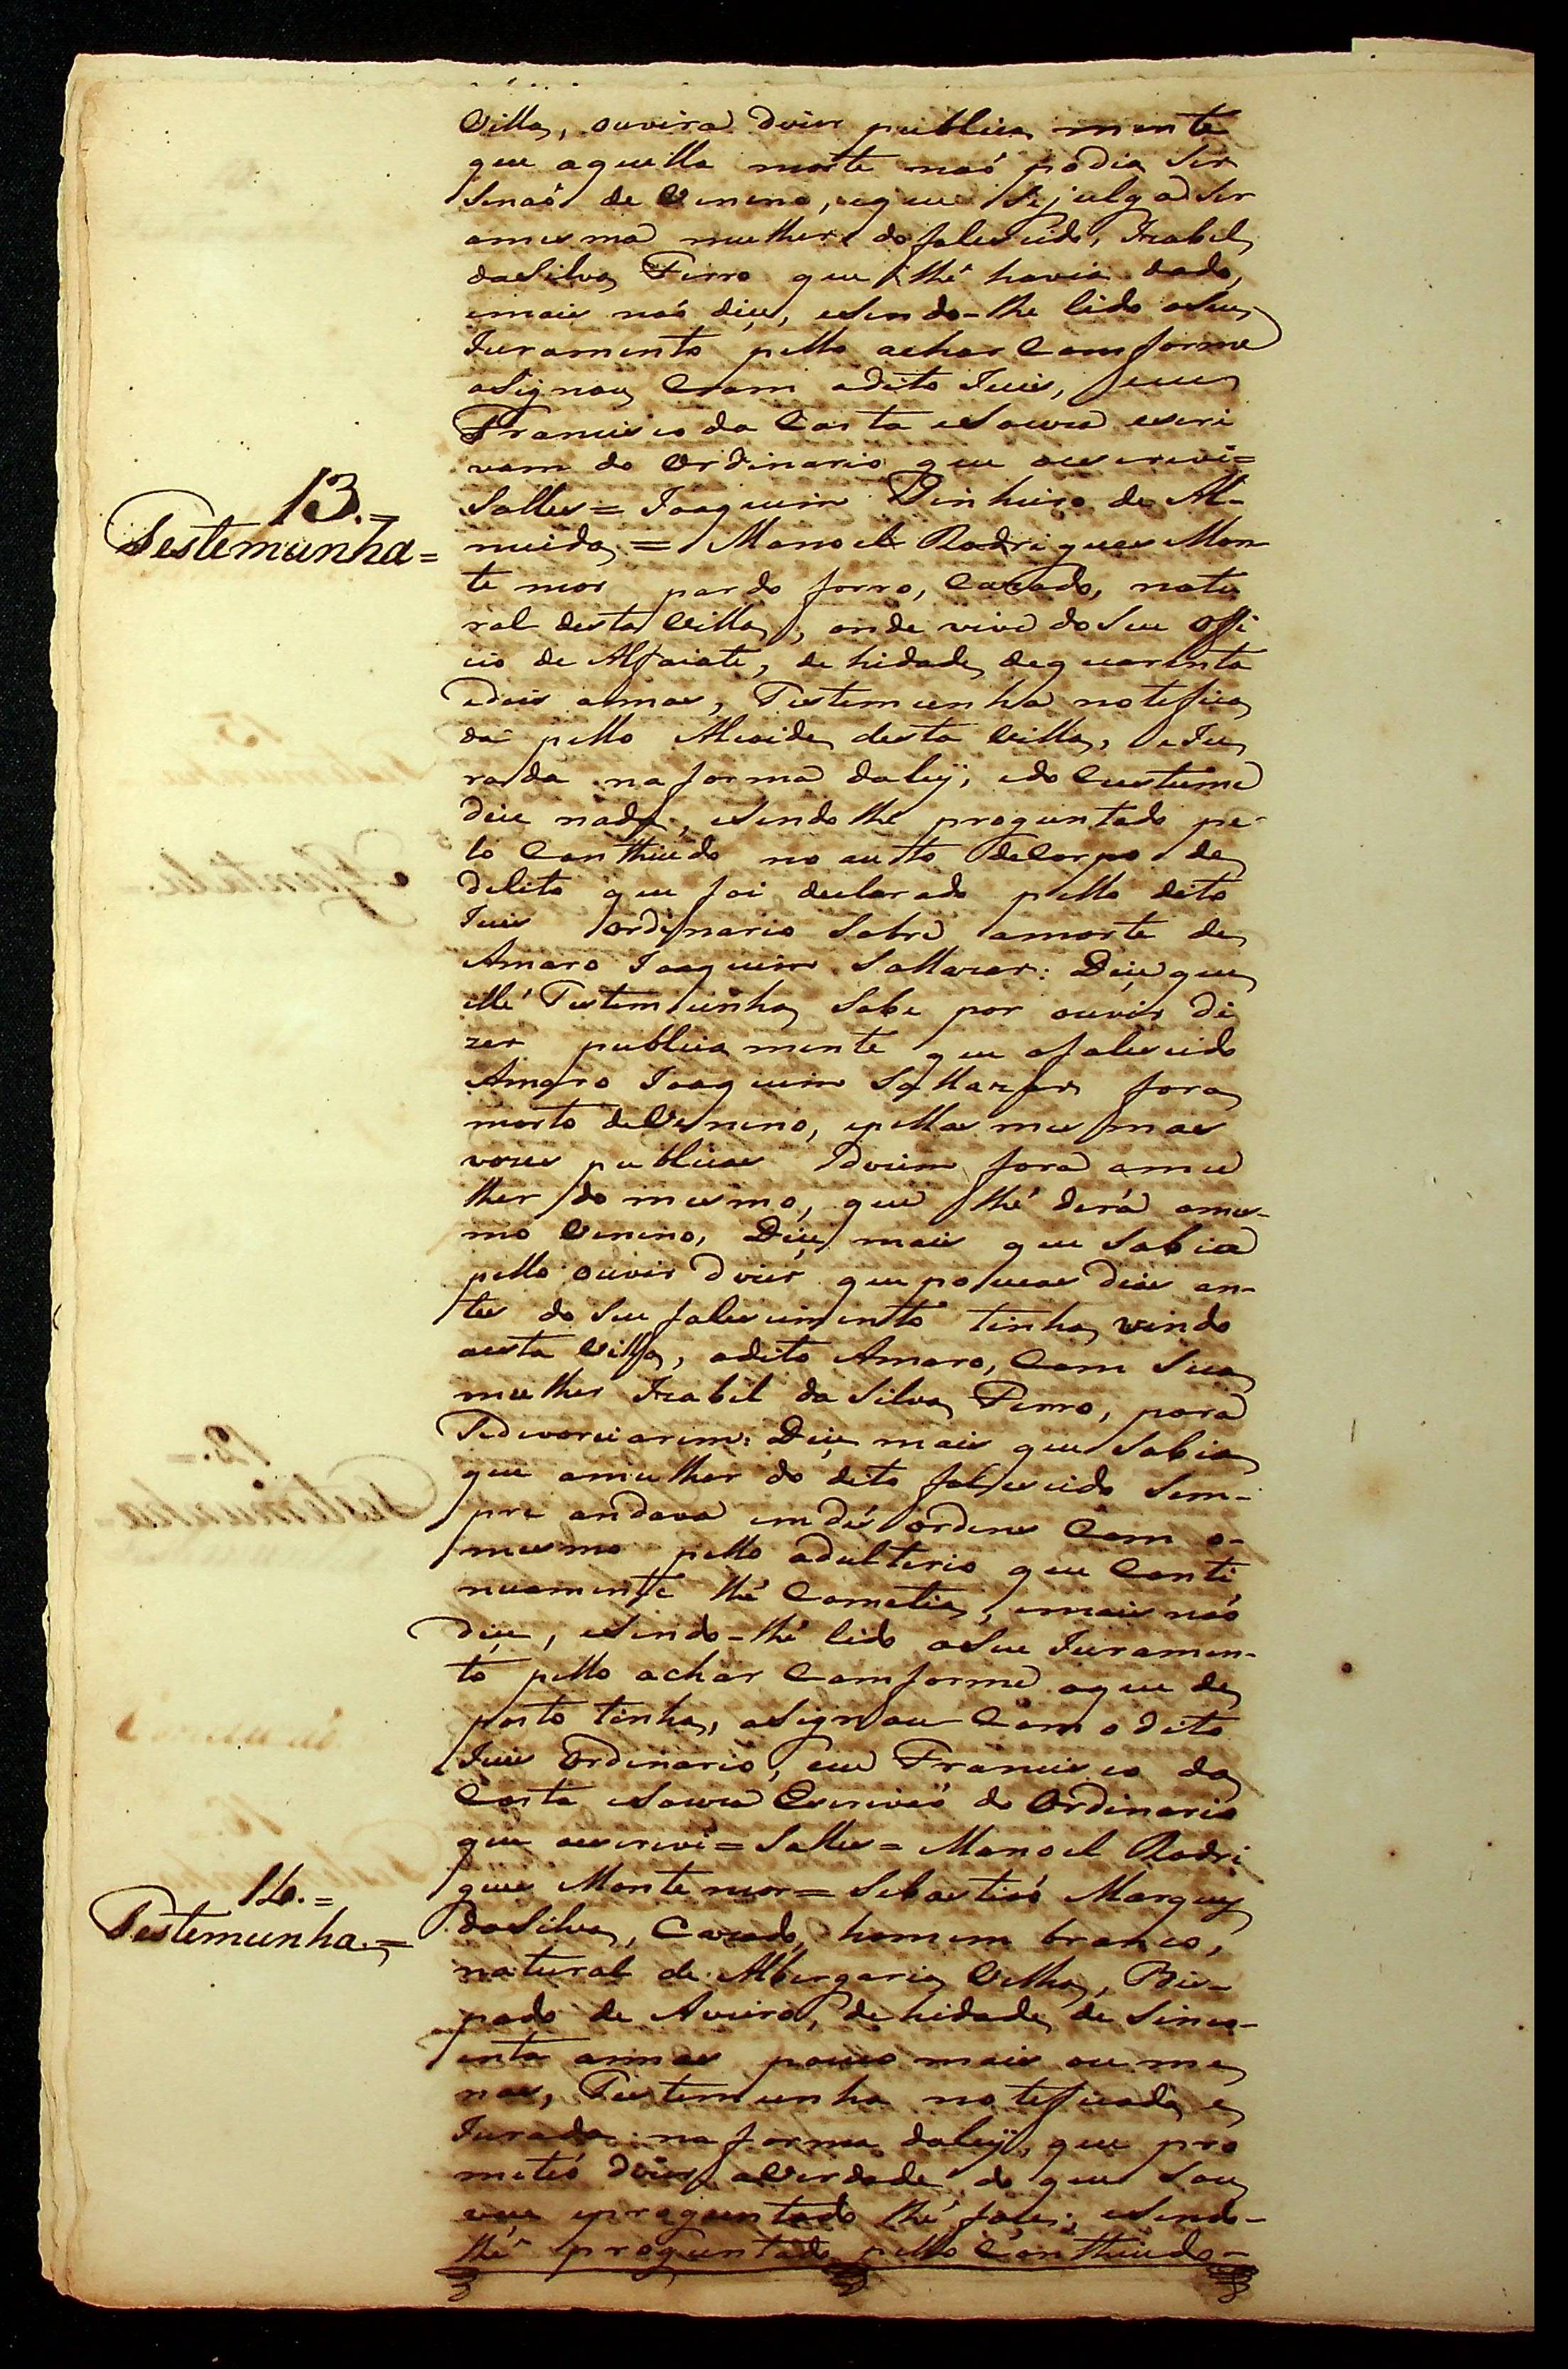 Villa, ouvira dizer publica mente
que aquella morte naó podia Ser
Senaó de Venino, eque Sejulga Ser
amesma mulher do falescido, Izabel
daSilva Ferro que lhé havia dado,
emais naó dice, eSendo-lhe lido oSeu
Juramento pello achar Comforme
aSignou Com odito Juis, eeu
Francisco da Costa eSouza escri
vam do Ordinario que oescrevi=
Salles= Joaquim Pinheiro de Al-
13.=
Testemunha=
meida,= Manoel Rodrigues Mon
te mor pardo forro, Cazado, natu
ral desta Villa, onde vive do Seu offi
cio de Alfaiate, de hidade dequarenta
edois annos, Testemunha notefica
da pello Alcaide desta Villa, eJu
rada na forma daley, edo Custume
dice nada, eSendo lhe proguntado pe-
lo Conthiudo no auto deCorpo de
delito que foi declarado pello dito
Juis ordinario Sobre amorte de
Amaro Joaquim Sallazar: Dice que
elle Testemunha Sabe por ouvir di
zer publica mente que ofalescido
Amaro Joaquim Sallazar fora
morto deVenino, epellas mesmas
vozes publicas dizem fora amu
lher do mesmo, que lhé derá omes-
mo Venino, Dice mais que Sabia
pello ouvir dizer que poucos dias an-
tes do Seu falescimento tinha vindo
aesta Villa, odito Amaro, Com Sua
mulher Izabel da Silva Ferro, para
Sedevorciarem: Dice mais que Sabia
que amulher do dito falescido Sem-
pre andava emdés ordens Com o-
mesmo pello adulterio que Conti
nuamente lhé Cometia, emais naó
dice, eSendo-lhé lido oSeu Juramen-
to pello achar Comforme oque de
posto tinha, aSignou Com odito
Juis Ordinario, eeu Francisco da
Costa eSouza Escrivaó do Ordinario
que oescrevi= Salles= Manoel Rodri
14.=
Testemunha.=
gues Montemor= Sebastiaó Marques
daSilva, Cazado, homem branco,
natural de Albergaria Velha, Bis-
pado de Aveiro, de hidade de Sinco-
enta annos pouco mais ou me
nos, Testemunha noteficada e
Jurada na forma daley, que pro
meteó dizer aVerdade do que Sou
esse eproguntado lhé fosse; eSendo-
lhé proguntado pello Conthiudo-